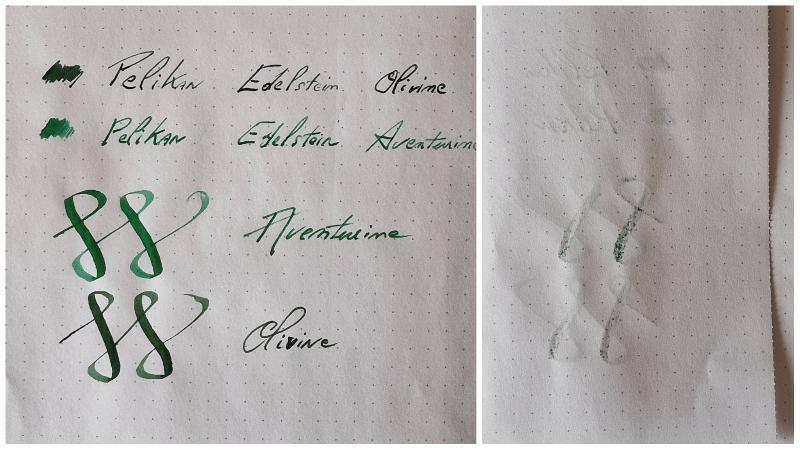 Pelikan Edelstein Olivine
Pelikan Edelstein Aventurine
Aventurine
Olivine